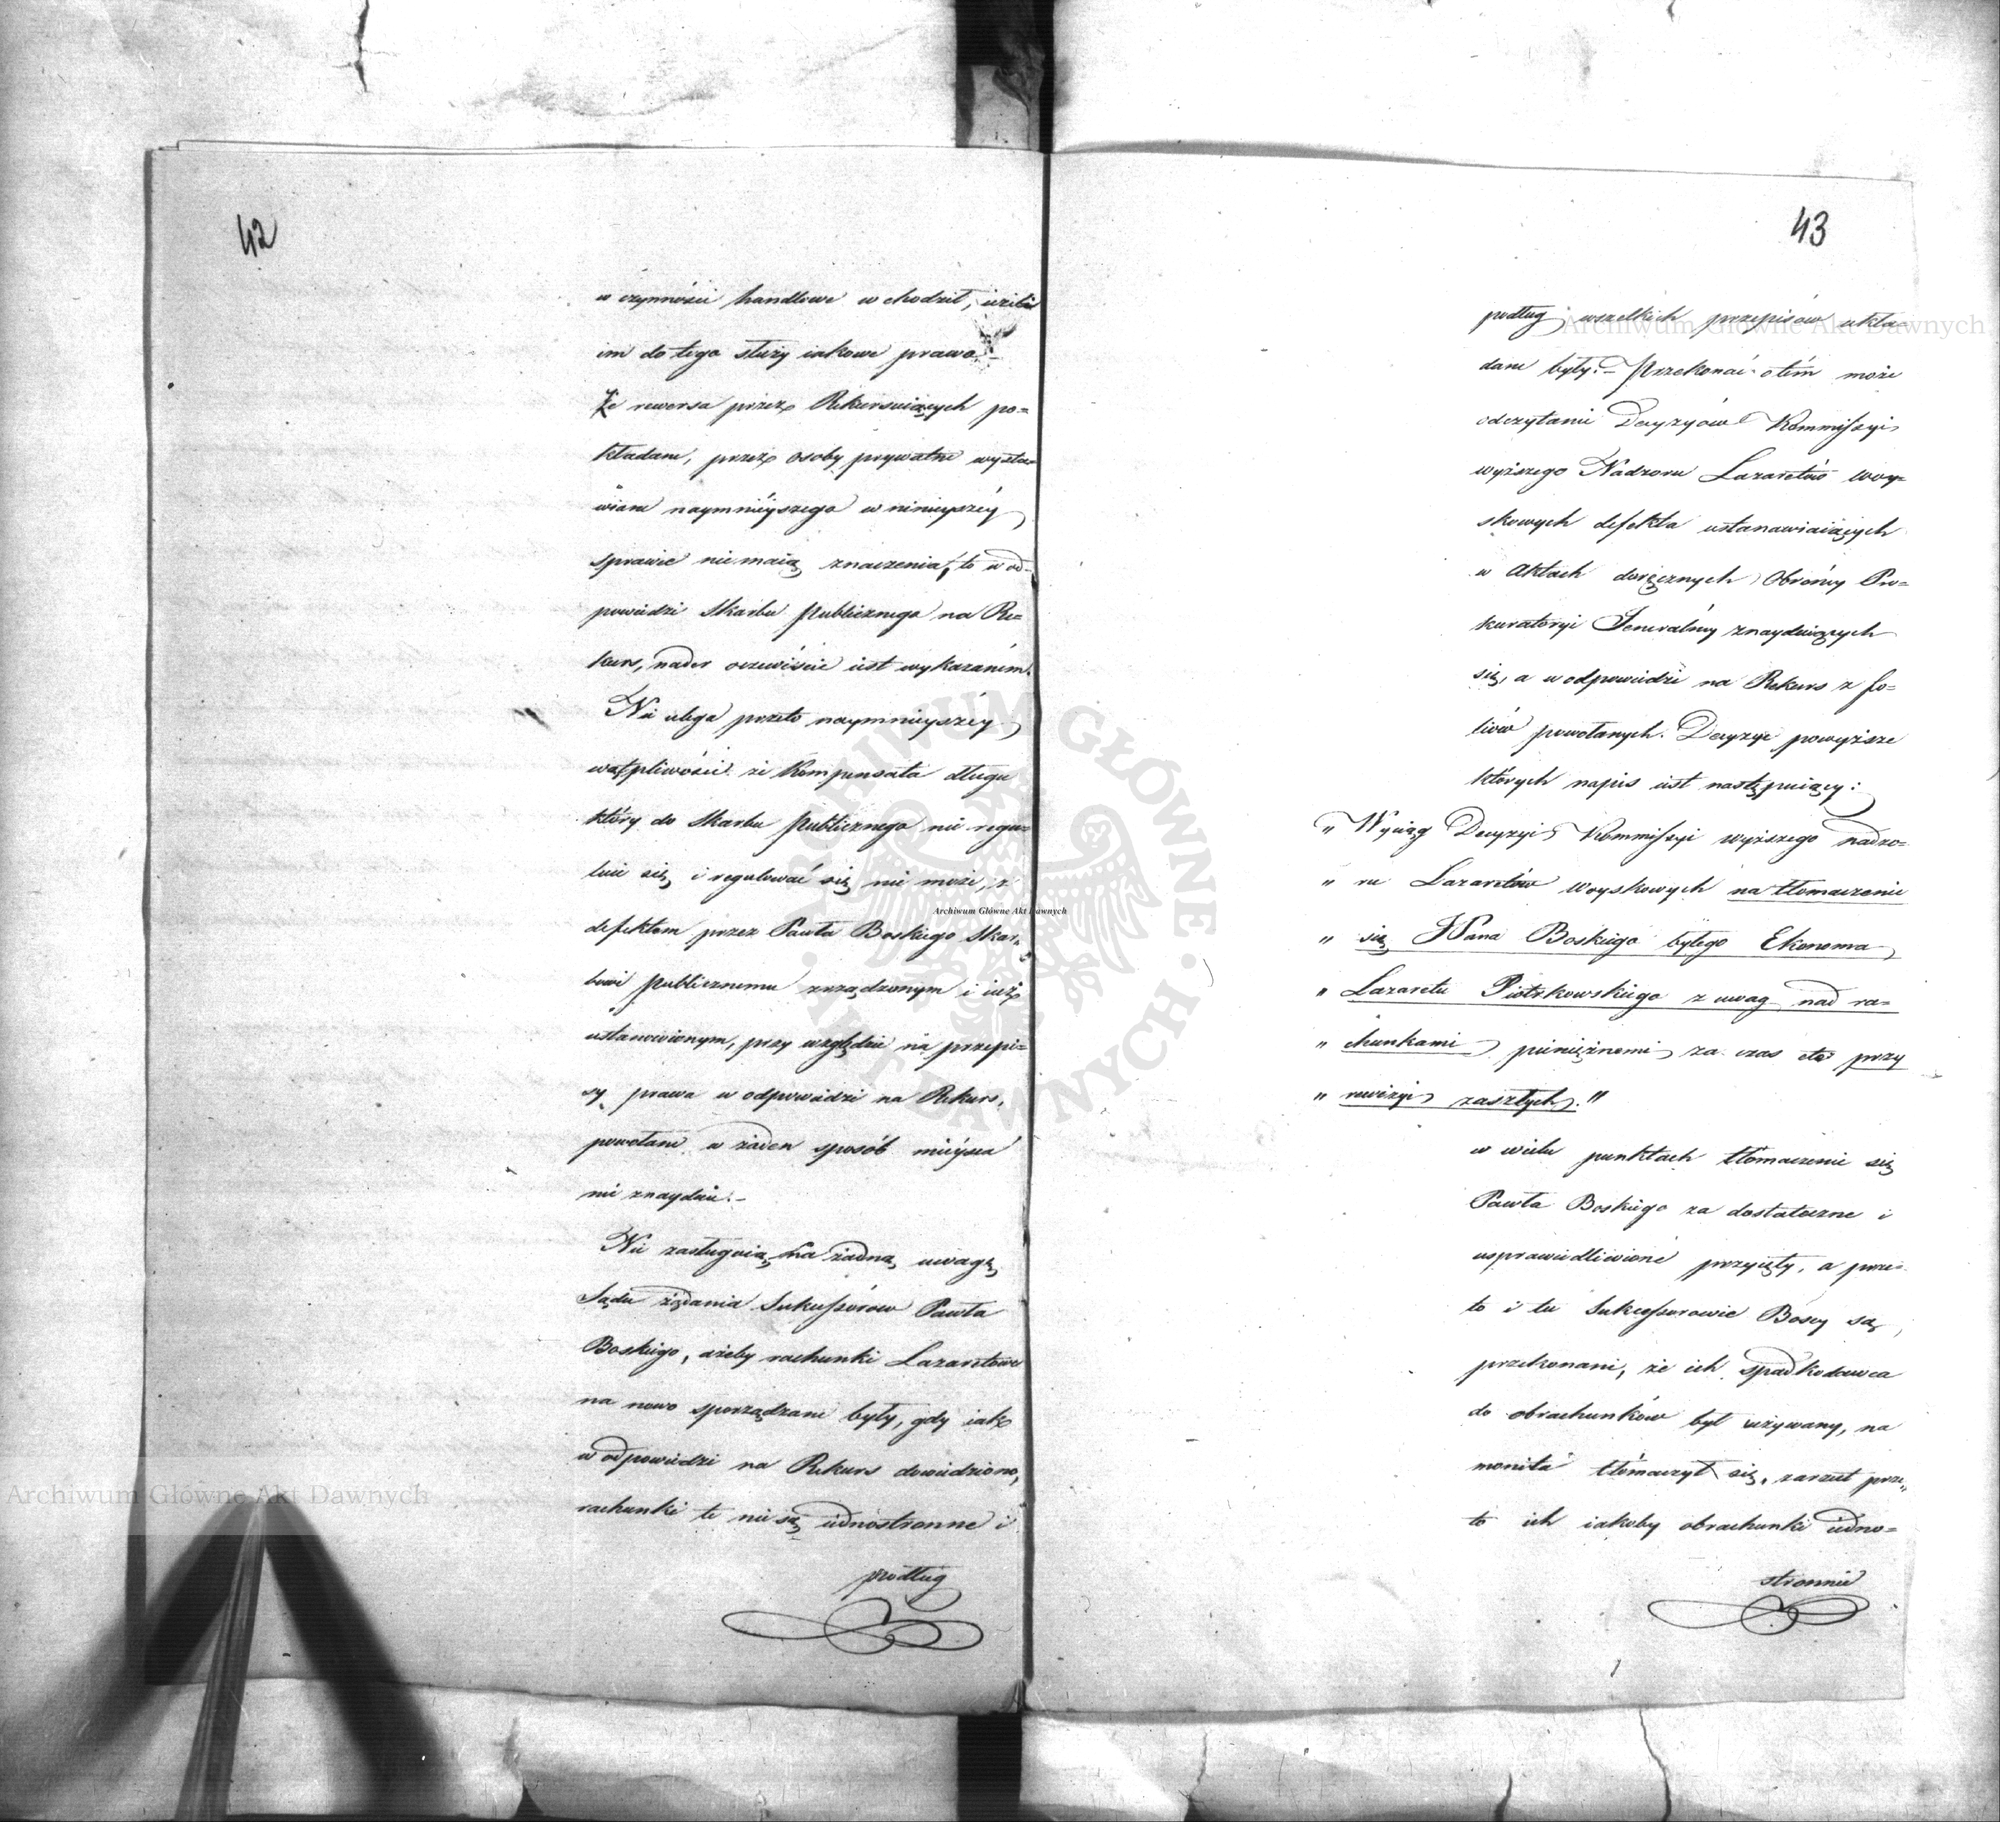 42
w czynności handlowe wchodził, ieżeli
im do tego służy iakowe prawo.
Że rewersa przez Rekursuiących po=
kładane, przez osoby prywatne wysta=
wiane naymnieyszego w ninieyszéy
sprawie nie maią znaczenia, to w od=
powiedzi Skarbu Publicznego na Re=
kurs, nader oczewiście iest wykazaném.
Nie ulega przeto naymnieyszéy
wątpliwości że Kompensata długu
który do Skarbu Publicznego nie regu=
luie się i regulować się nie może, z
defektem przez Pawła Boskiego Skar=
bowi Publicznemu zrządzonym i iuż
ustanowionym, przy względzie na przepi=
sy prawa w odpowiedzi na Rekurs,
powołane w żaden sposób mieysca
nie znaydzie.-
Nie zasługuią na żadną uwagę
Sądu żądania Sukcessorów Pawła
Boskiego, ażeby rachunki Lazaretowe
na nowo sporządzane były, gdy iak
w odpowiedzi na Rekurs dowiedziono,
rachunki te nie są iednostronne i
podług
43
podług wszelkich przepisów ukła=
dane były.- Przekonać o tém może
odczytanie Decyzyów Kommissyi
wyższego Nadzoru Lazaretów woy=
skowych defekta ustanawiaiących
w Aktach doręcznych Obrońcy Pro=
kuratoryi Jeneralnéy znayduiących
się, a w odpowiedzi na Rekurs z fo=
liów powołanych. Decyzye powyższe
których napis iest następuiący:
" Wyciąg Decyzyi Kommissyi wyższego nadzo=
" ru Lazaretów woyskowych na tłomaczenie
" się JPana Boskiego byłego Ekonoma
" Lazaretu Piotrkowskiego z uwag nad ra=
" chunkami pieniężnemi za czas etc przy
" rewizyi zaszłych."
w wielu punktach tłomaczenie się
Pawła Boskiego za dostateczne i
usprawiedliwione przyięły, a prze=
to i tu Sukcessorowie Boscy są
przekonani, że ich spadkodawca
do obrachunków był używany, na
monita tłómaczył się, zarzut prze=
to ich iakoby obrachunki iedno=
stronnie
Archiwum Główne Akt Dawnych
Archiwum Główne Akt Dawnych
Archiwum Główne Akt Dawnych
ARCHIWUM GŁÓWNE AKT DAWNYCH